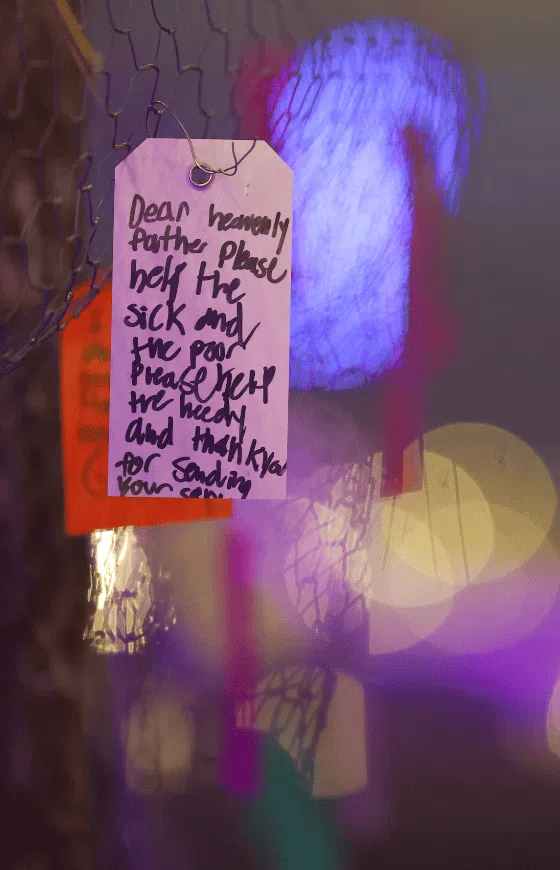 Dear heavenly
father Please
help the
sick and
the poor
Please help
the needy
and thank you
for sending
your son